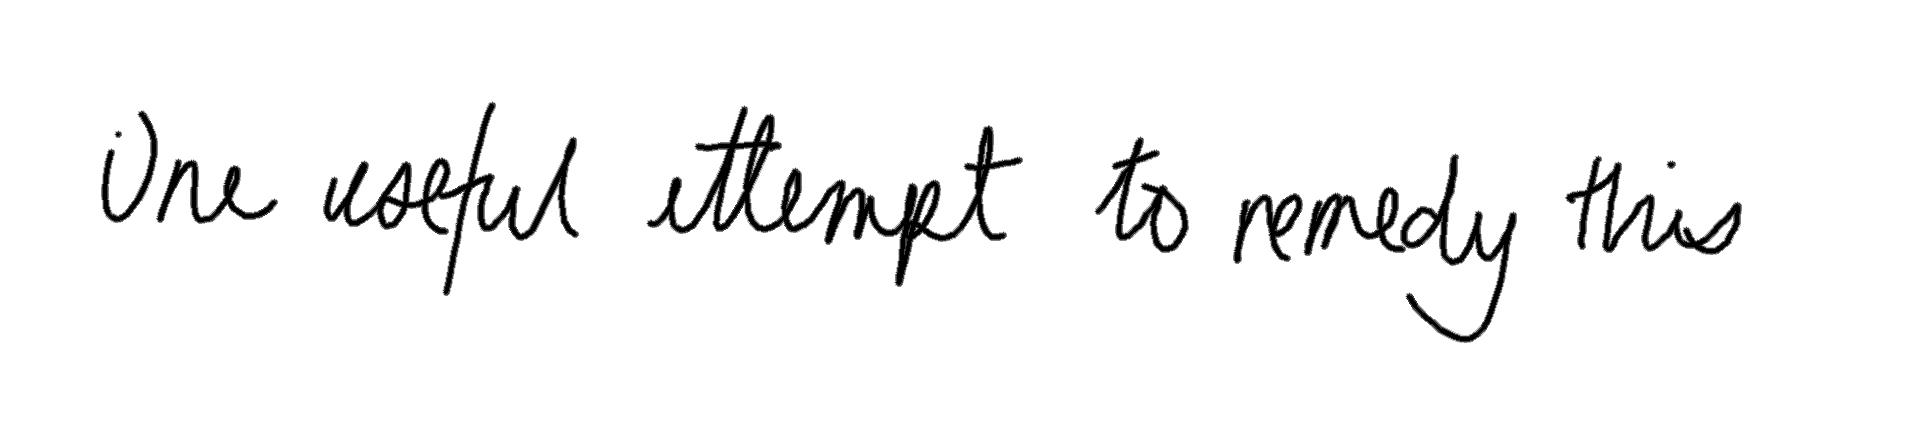 One useful attempt to remedy this